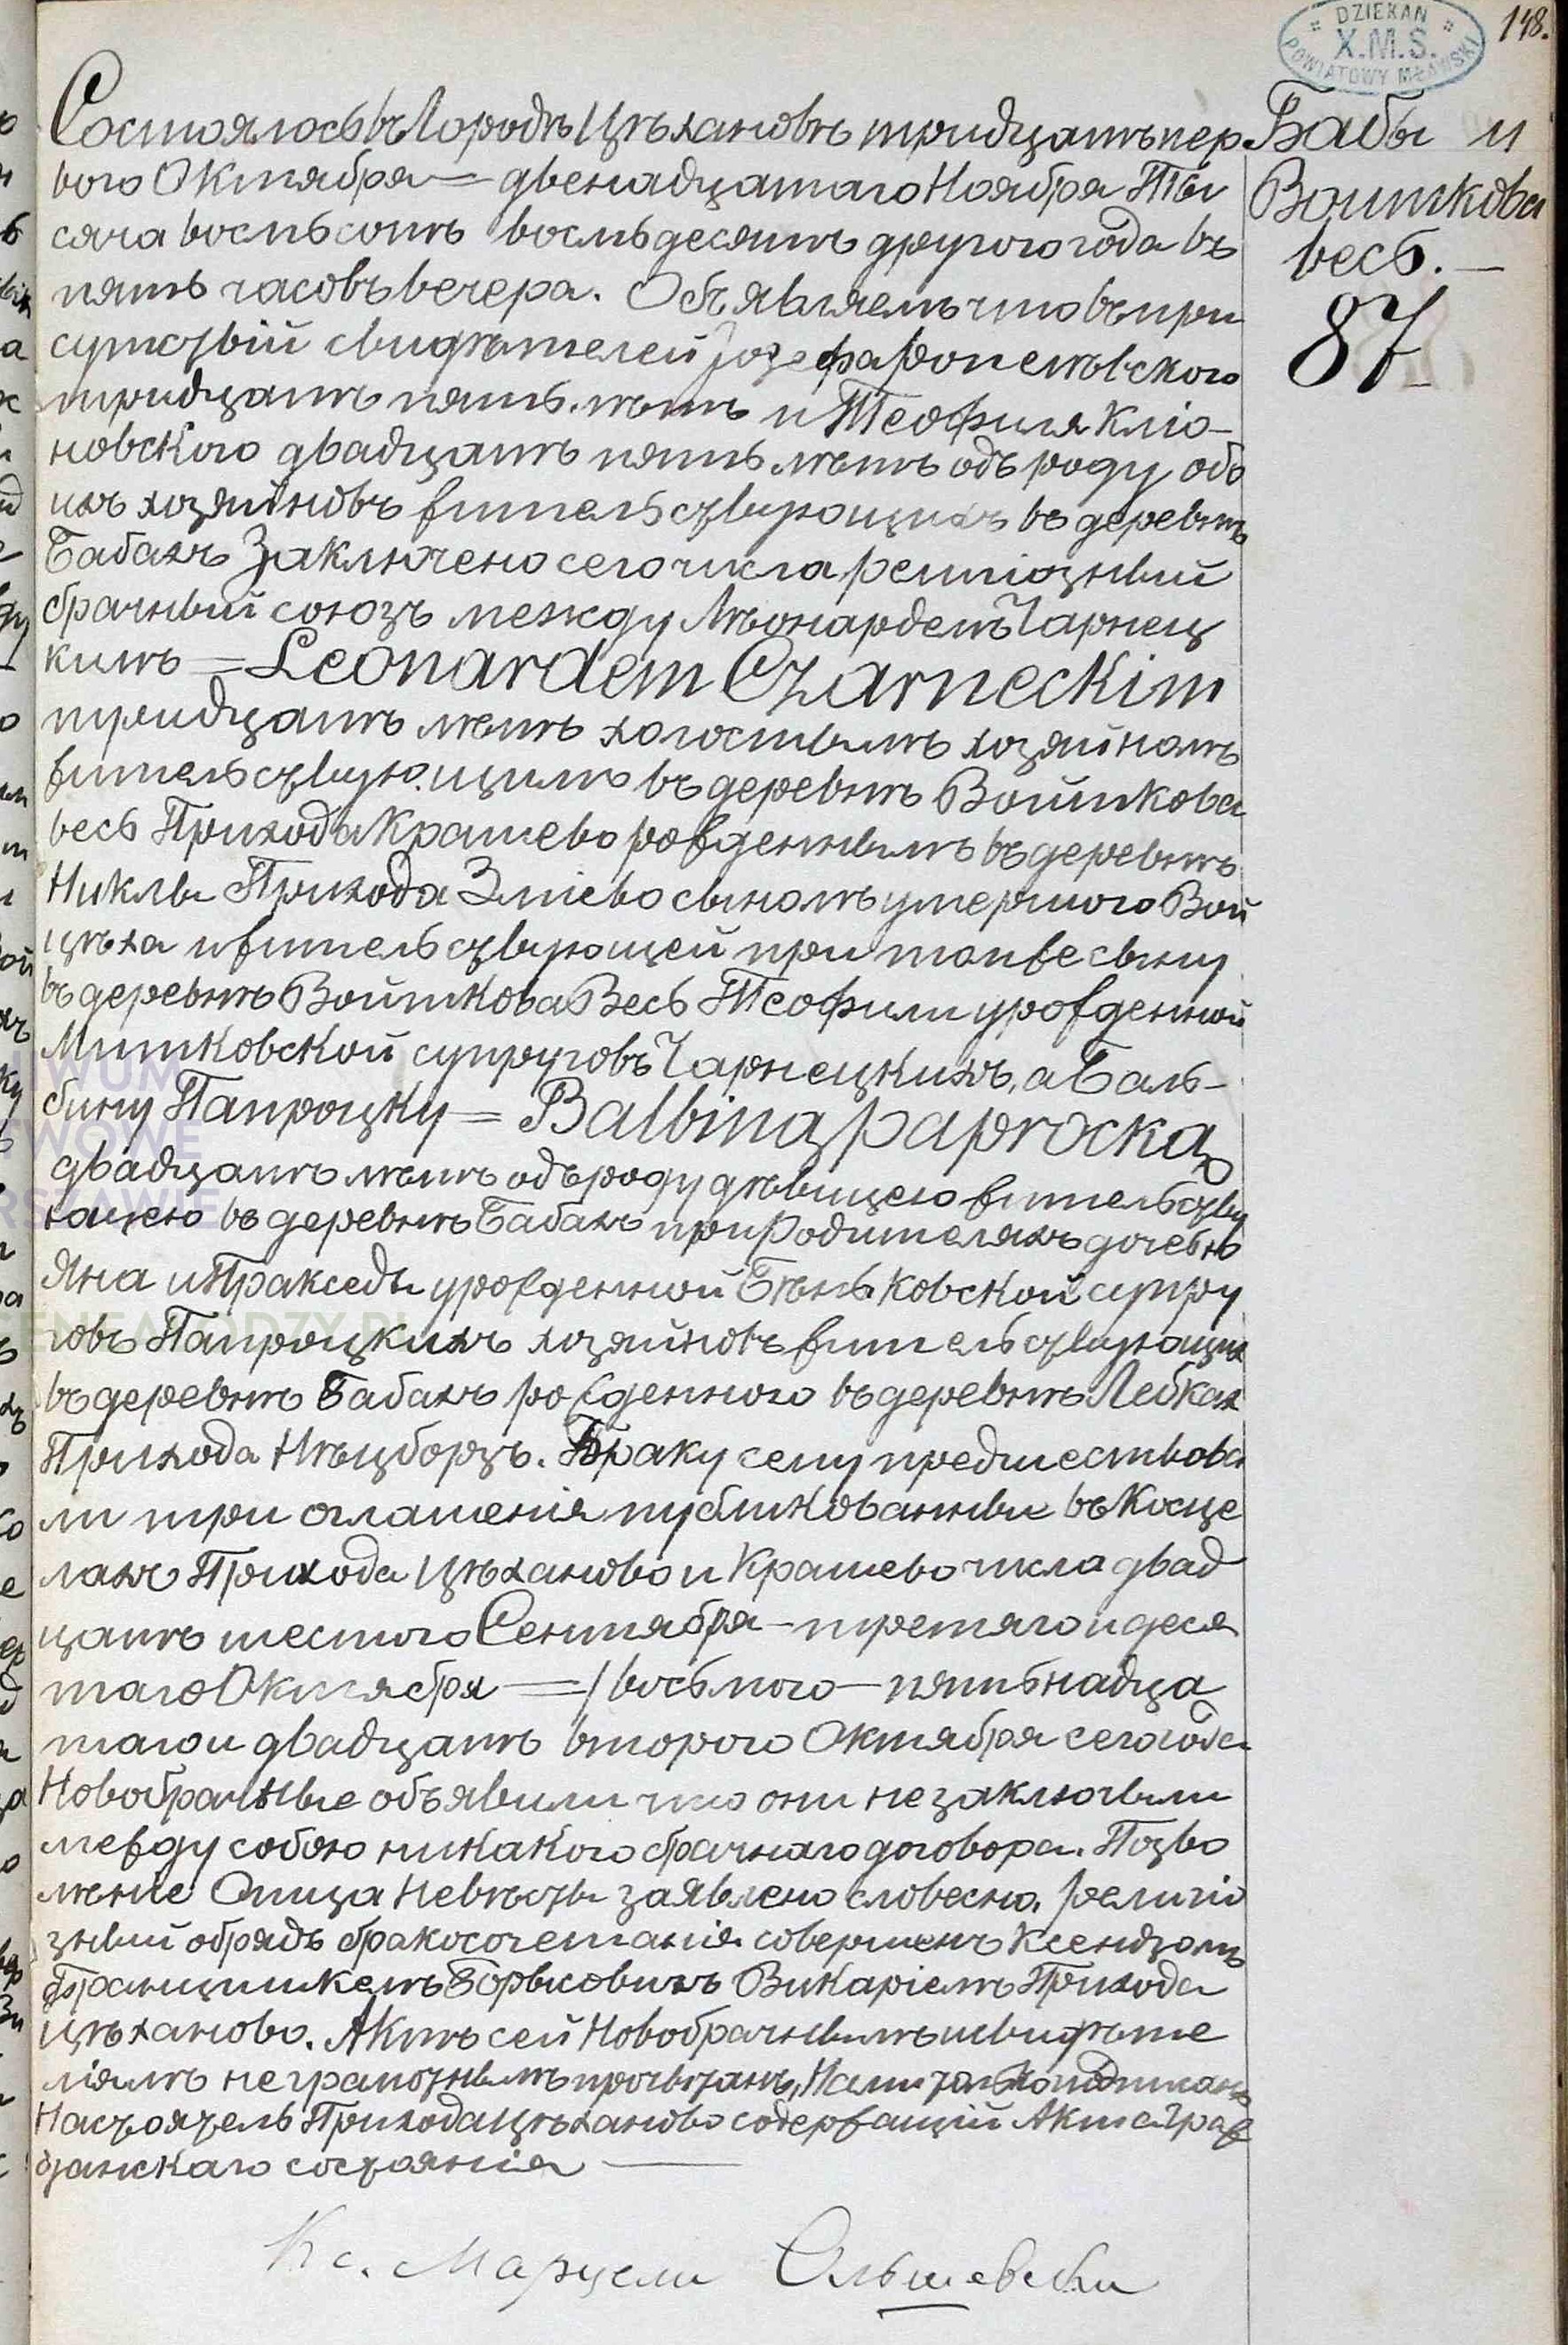 148.
DZIEKAN
X.M.S.
POWIATOWY MŁAWSKI
Бабы и
Войткова
весь.—
87
Состоялось въ Городѣ Цѣхановѣ тридцать пер
вого Октября = двенадцатаго Ноября Ты
сяча восмьсотъ восмьдесятъ другого года въ
пять часовъ вечера. Объявляемъ что въ при
сутствій свидѣтелей Іозефа
тридцать пять лѣтъ и Теофиля Кліо-
новского двадцать пять лѣтъ одъ роду обо
ихъ хозяйновъ жительствующихъ въ деревнѣ
Бабахъ Заключено сего числа религіозный
брачный союзъ между Лѣонардемъ Чарнец
кимъ = Leonardem Czarneckim
тридцать лѣтъ холостымъ хозяйномъ
жительствующимъ въ деревнѣ Войткова
весь Прихода Крашево рожденнымъ въ деревнѣ
Никлы Прихода Зміево сыномъ умершого Вой
цѣха и жительствующей при томже сыну
въ деревнѣ Войткова Весь Теофили урожденной
Митковской супруговъ Чарнецкихъ, а Баль-
бину Папроцку = Balbiną Paprocką
двадцать лѣтъ одъ роду дѣвицею жительству
ющею въ деревнѣ Бабахъ при Родителяхъ дочерью
Яна и Пракседы урожденной Бѣньковской супру
говъ Папроцкихъ хозяйновъ жительствующихъ
въ деревнѣ Бабахъ рожденного въ деревнѣ Лебках
Прихода Нѣцборзъ. Браку сему предшествова
ли три оглашенія публикованные въ Косце
лахъ Прихода Цѣханово и Крашево числа двад
цать шестого Сентября — третяго и деся
таго Октября =/ восьмого — пятьнадца
таго и двадцать второго Октября сего года
Новобрачные объявили что они не заключыли
между собою никакого брачнаго договора. Позво
лѣніе Отца Невѣсты заявлено словесно. Религіо
зный обрядъ бракосочетанія совершенъ Ксендзомъ
Францишкемъ Викаріемъ Прихода
Цѣханово. Актъ сей Новобрачнымъ и свидѣте
лямъ неграмотнымъ прочытанъ, Нами
Настоятель Прихода Цѣханово содержащій Акта Граж
данскаго состоянія —
Кс. Марцели Ольшевски